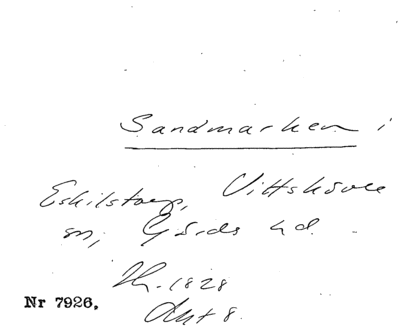 Sandmarken i
Eskilstorp, Vittskövle
sn, Gärds hd.
1828
Nr 7926.
Akt 8.